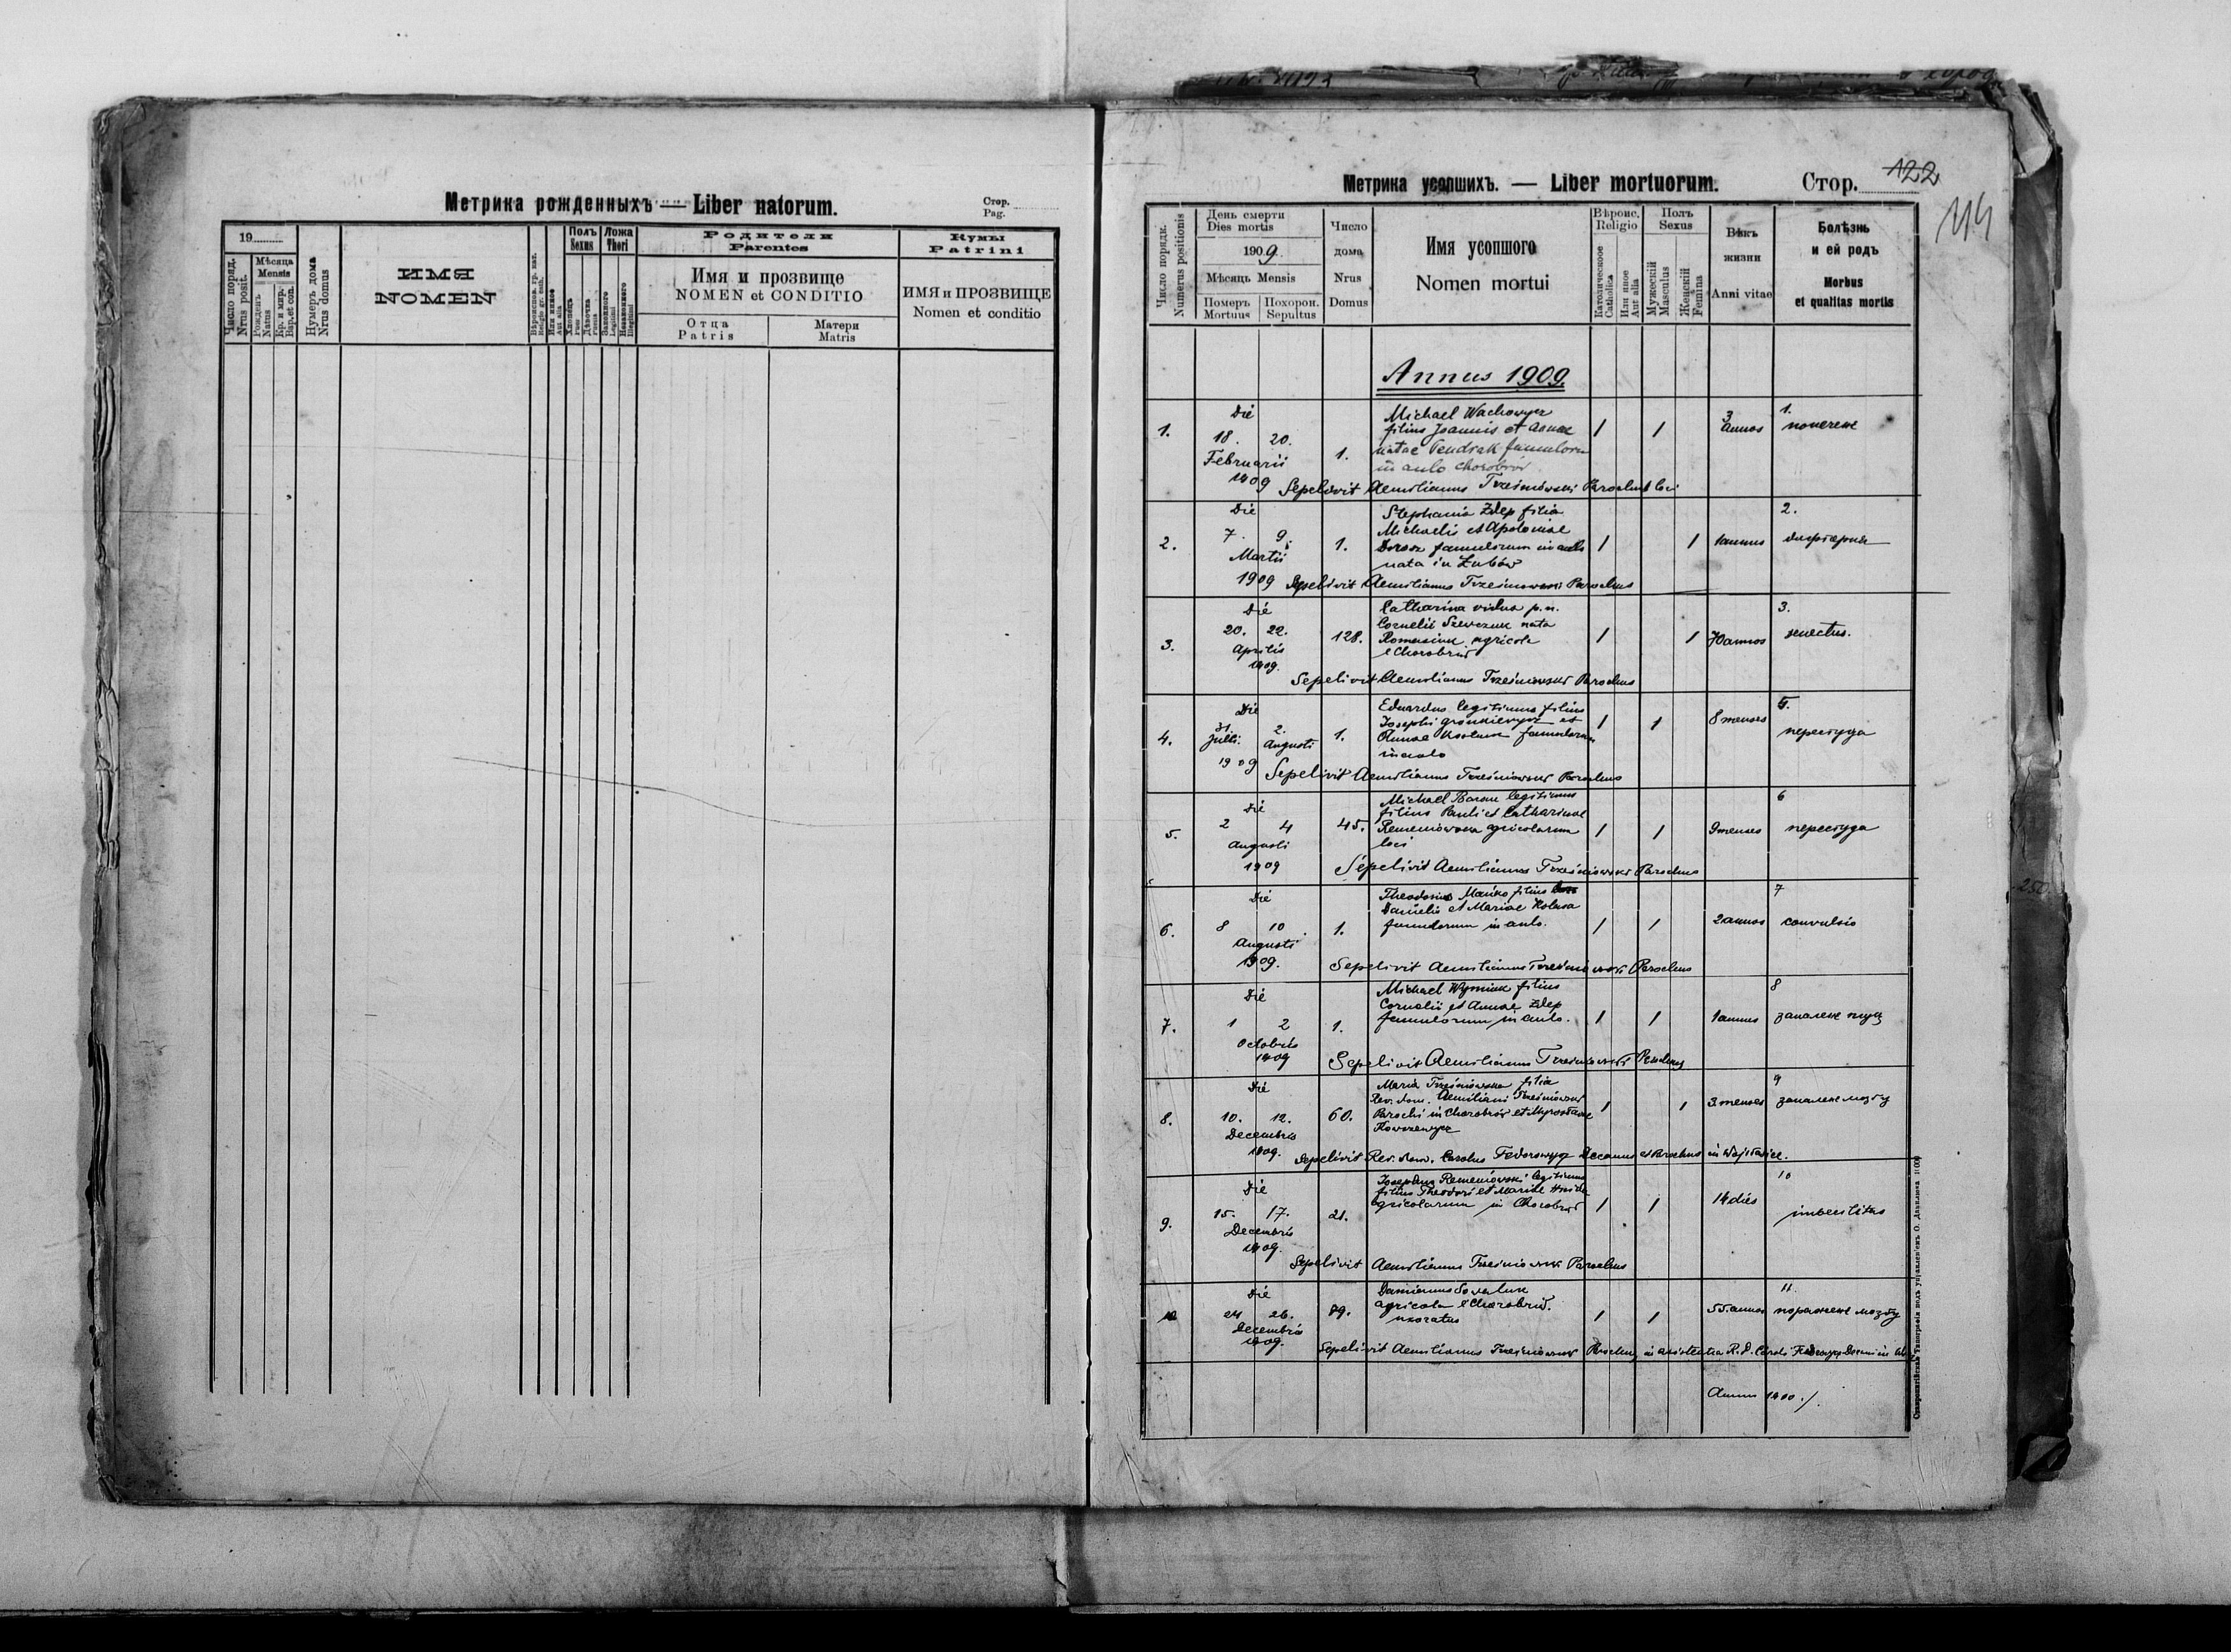 Метрика рожденныхъ — Liber natorum.
Стор.
Pag.
19
Число поряд.
Nrus posit.
Мѣсяца
Mensis
Рожденъ
Natus
Кр. и мир.
Bap. et con.
Нумеръ дома
Nrus domus
ИМЯ
NOMEN
Вѣроиспов. гр. каѳ.
Religio gr. cath.
Или иное
Aut alia
Полъ
Sexus
Хлопець
Puer
Дѣвочка
Puella
Ложа
Thori
Законного
Legitimi
Незаконного
Illegitimi
Родители
Parentes
Имя и прозвище
NOMEN et CONDITIO
Отца
Patris
Матери
Matris
Кумы
Patrini
ИМЯ и ПРОЗВИЩЕ
Nomen et conditio
Метрика усопшихъ. — Liber mortuorum.
Стор. 122
Число порядк.
Numerus positionis
День смерти
Dies mortis
1909
Мѣсяць Mensis
Померъ
Mortuus
Похорон.
Sepultus
Число
дома
Nrus
Domus
Имя усопшого
Nomen mortui
Вѣроис.
Religio
Католическое
Catholica
Или иное
Aut alia
Полъ
Sexus
Мужескій
Masculus
Женскій
Femina
Вѣкъ
жизни
Anni vitae
Болѣзнь
и ей родъ
Morbus
et qualitas mortis
Annus 1909.
1.
Die
18. 20.
Februarii
1909
1.
Michael Wachowycz
filius Joannis et Annae
natae Pendrak famulorum
in aulo Chorobrów
1
1
3
annos
1.
Sepelivit Aemilianus Trześniowski Parochus loci
2.
Die
7. 9.
Martii
1909
1.
Stephania Zdep filia
Michaelis et Apoloniae
famulorum in aulo
nata in Żubów
1
1
1 annus
2.
Sepelivit Aemilianus Trześniowski Parochus
3.
Die
20. 22.
Aprilis
1909.
128.
Catharina vidua p. n.
Cornelii Szewczuk nata
agricola
e Chorobrów
1
1
70 annos
3.
senectus.
Sepelivit Aemilianus Trześniowski Parochus
4.
Die
31. 2.
Julii. Augusti
1909
1.
Eduardus legitimus filius
Josephi et
Annae famulorum
in aulo
1
1
8 menses
5.
перестуда
Sepelivit Aemilianus Trześniowski Parochus
5.
Die
2 4
Augusti
1909
45.
Michael Baran legitimus
filius Pauli et Catharinae
Remeniowska agricolarum
loci
1
1
9 menses
6
перестуда
Sepelivit Aemilianus Trześniowski Parochus
6.
Die
8 10
Augusti
1909.
1.
Theodosius Mańko filius
Danielis et Mariae
famulorum in aulo.
1
1
2 annos
7
convulsio
Sepelivit Aemilianus Trześniowski Parochus
7.
Die
1 2
Octobris
1909
1.
Michael filius
Cornelii et Annae Zdep
famulorum in aulo.
1
1
1 annus
8
запалене
Sepelivit Aemilianus Trześniowski Parochus
8.
Die
10. 12.
Decembris
1909.
60.
Maria Trześniowska filia
Rev. dom. Aemiliani Trześniowski
Parochi in Chorobrów et Myrosławae
1
1
3 menses
9
запалене мозгу
Sepelivit Rev. dom. Carolus Fedorowycz Decanus et Parochus in
9.
Die
15. 17.
Decembris
1909.
21.
Josephus Remeniowski legitimus
filius Theodori et Mariae
agricolarum in Chorobrów
1
1
14 dies
10
imbecilitas
Sepelivit Aemilianus Trześniowski Parochus
10
Die
24 26.
Decembris
1909.
89.
Damianus
agricola e Chorobrów.
uxoratus
1
1
55. annos
11.
пораженє мозгу
Sepelivit Aemilianus Trześniowski Parochus in assistentia R. D. Caroli